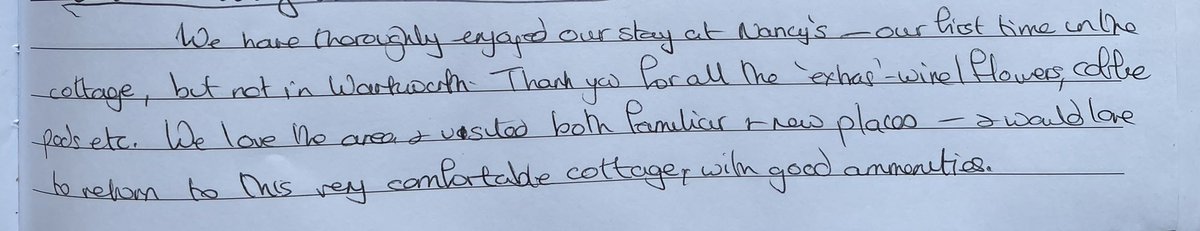 We have thoroughly enjoyed our stay at Nancy's – our first time in the
cottage, but not in Warkworth. Thank you for all the 'extras' - wine / flowers, coffee
pods etc. We love the area & visited both familiar + new places – & would love
to return to this very comfortable cottage, with good ammenities.